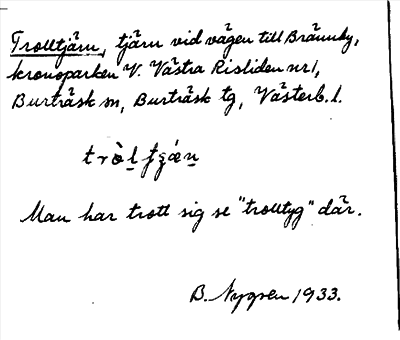 Trolltjärn, tjärn vid vägen till Brännby,
kronoparken V. Västra Risliden nr 1,
Burträsk sn, Burträsk tg, Västerb. l.
Man har trott sig se "trolltyg" där.
B. Nygren 1933.